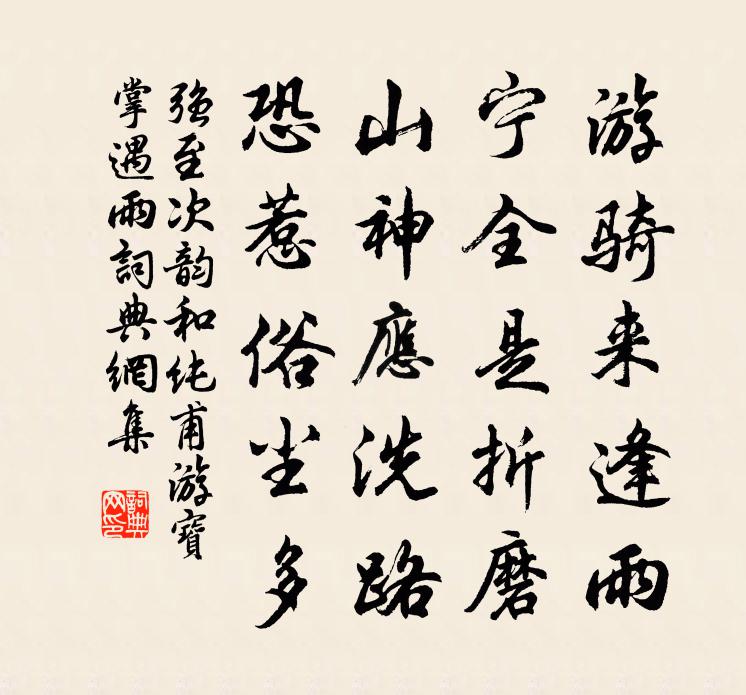 游骑来逢雨
宁全是折磨
山神應洗路
恐惹俗尘多
強至次韵和纯甫游寶
掌遇雨詞典網集
詞典
网印